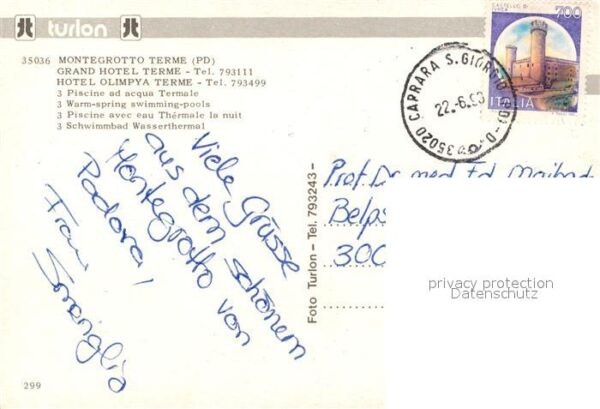 turlon
35036 MONTEGROTTO TERME (PD)
GRAND HOTEL TERME - Tel. 793111
HOTEL OLIMPYA TERME - Tel. 793499
3 Piscine ad acqua Termale
3 Warm-spring swimming-pools
3 Piscine avec eau Thérmale la nuit
3 Schwimmbad Wasserthermal
Viele Grüsse
aus dem schönem
Montegrotto von
Padova!
Frau
299
Foto Turlon - Tel. 793243 -
CASTELLO DI
700
ITALIA
35020 CAPRARA S. GIORGIO
22.-6.
Prof. Dr med Ed
Belps
300
privacy protection
Datenschutz